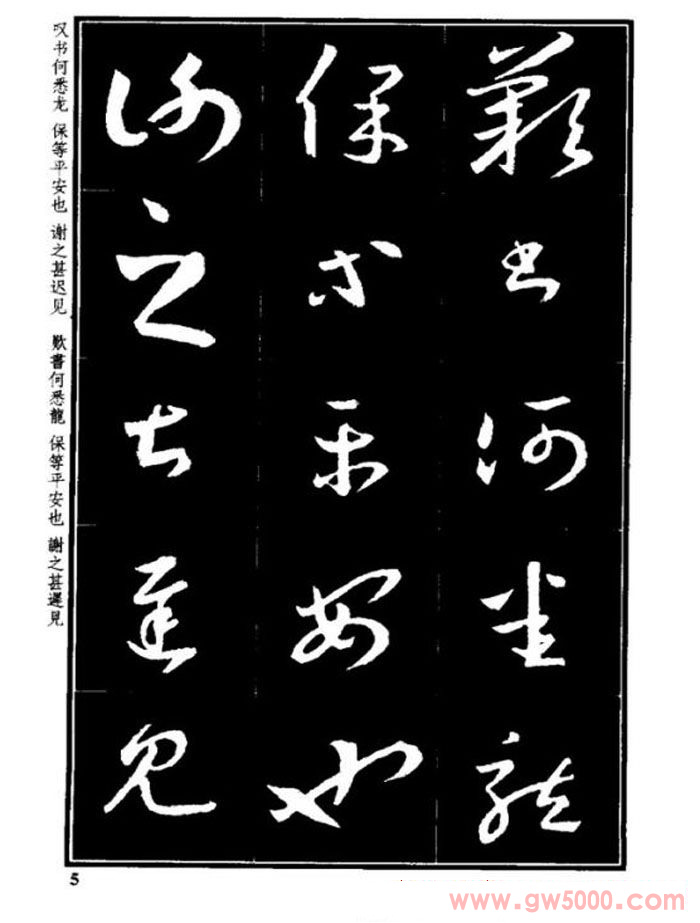 歎书何悉龙
保等平安也
谢之甚迟见
叹书何悉龙 保等平安也 谢之甚迟见 歎書何悉龍 保等平安也 謝之甚遲見
5
www.gw5000.com